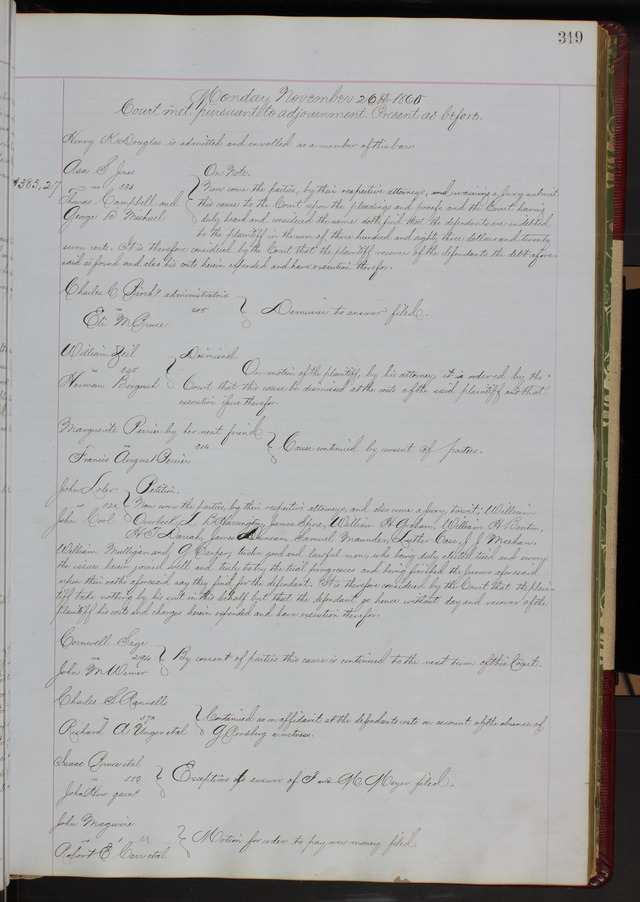 319
Monday November 26th 1860
Court met pursuant to adjournment. Present as before.
Henry K Douglas is admitted and enrolled as a member of this bar
Asa S Jones
$383,27
vs
Thomas Campbell and
George B Michael
On Note.
Now come the parties, by their respective attorneys, and waiving a Jury submit
this cause to the Court upon the pleadings and proofs and the Court having
duly heard and considered the same doth find that the defendants are indebted
to the plaintiff in the sum of three hundred and eighty three dollars and twenty
seven cents. It is therefore considered by the Court that the plaintiff recover of the defendants the debt afore-
said as found and also his costs herein expended and have execution therefor.
Charles C administratrix
vs
Eli M Bruce
Demurrer to answer filed.
William
vs
Herman
Dismissed.
On motion of the plaintiff, by his attorney, it is ordered by the
Court that this cause be dismissed at the costs of the said plaintiff and that
execution issue therefor.
Marguerite Perrier by her next friend
vs 214
Francis August Perrier
Cause continued by consent of parties.
John
vs
John Cool
Petition.
Now come the parties, by their respective attorneys, and also come a Jury, towit: William
Overbeck, L B Harrington, James Spore, William H Graham, William H Benton,
H T James Duncan, Samuel Maunder, Luther Case, J J Meehan,
William Mulligan and G twelve good and lawful men, who being duly elected tried and sworn
the issue herein joined well and truly to try the trial progresses and being finished the jurors aforesaid
upon their oaths aforesaid say they find for the defendant. It is therefore considered by the Court that the plain-
tiff take nothing by his suit in this behalf but that the defendant go hence without day and recover of the
plaintiff his costs and charges herein expended and have execution therefor.
Cornwell Sage
vs 294
John M Wimer
By consent of parties this cause is continued to the next term of this Court.
Charles S Rannells
vs
Richard A Unger et al
Continued as on affidavit at the defendants costs on account of the absence of
G a witness.
Isaac Bruce et al
vs
John How garne
Exceptions to answer of S and M Meyer filed.
John Maguire
vs
Robert E Carr et al
Motion for order to pay over money filed.